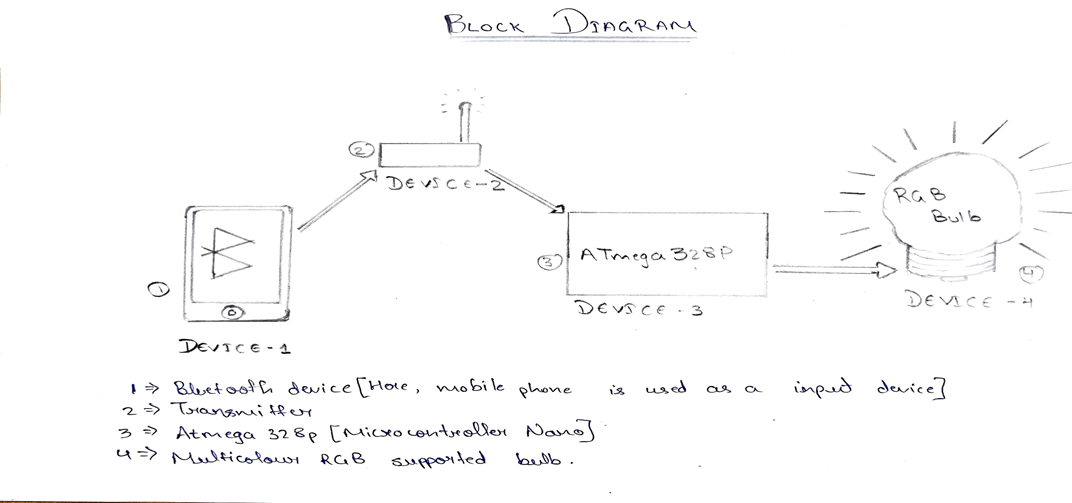 BLOCK DIAGRAM
2
DEVICE-2
RGB
Bulb
3
ATmega 328P
1
4
DEVICE - 4
DEVICE - 3
DEVICE-1
1 ⇒ Bluetooth device [Here, mobile phone is used as a input device]
2 ⇒ Transmitter
3 ⇒ Atmega 328p [Microcontroller Nano]
4 ⇒ Multicolour RGB supported bulb.